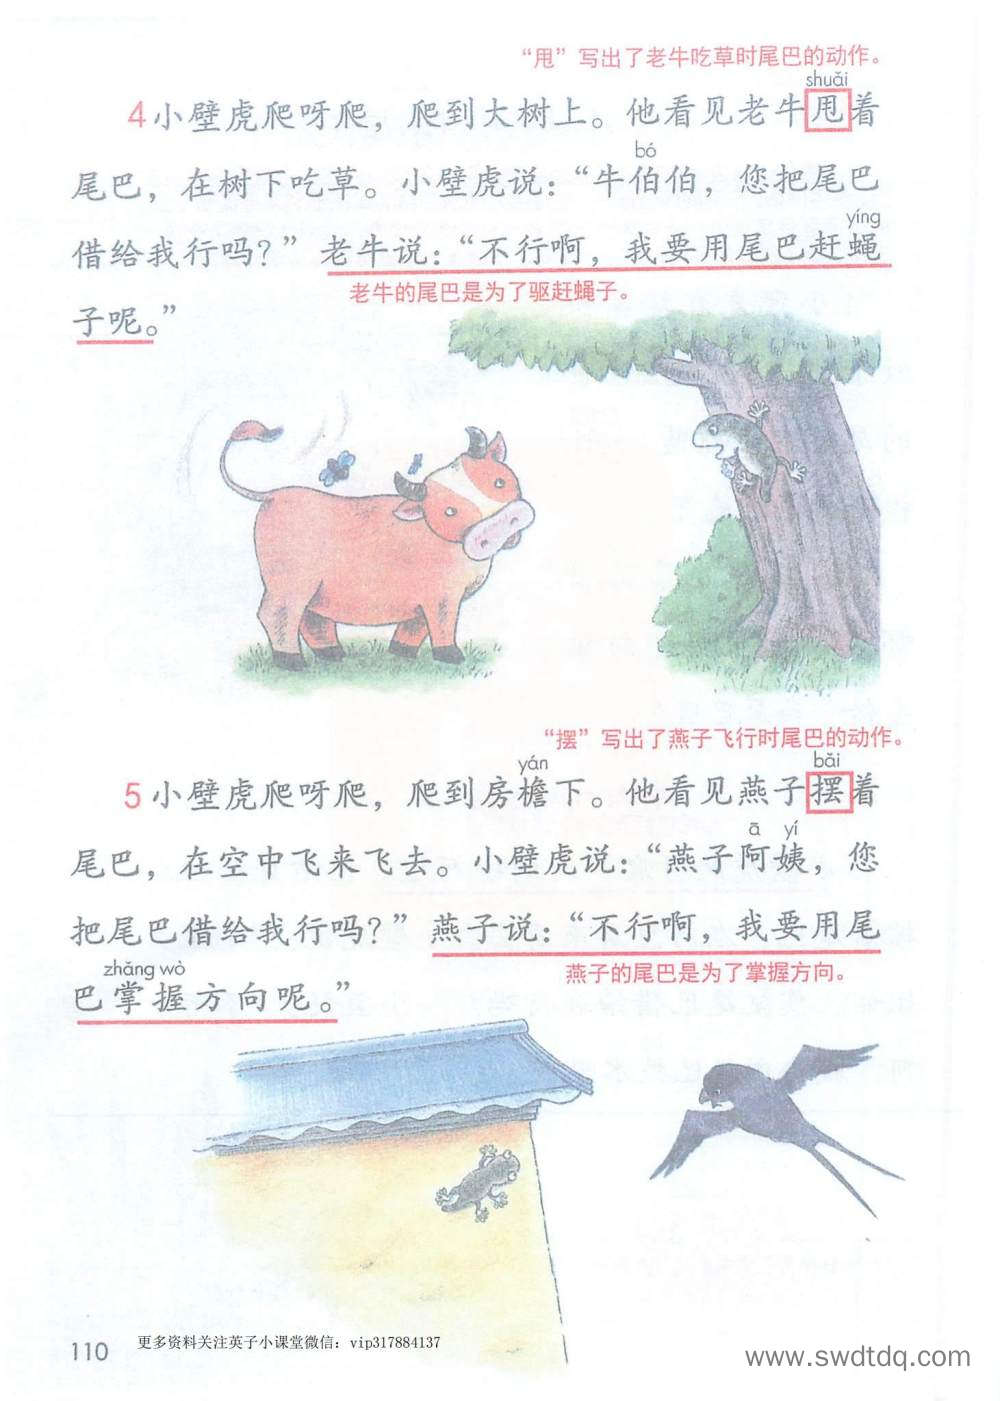 “甩”写出了老牛吃草时尾巴的动作。
shuǎi
4小壁虎爬呀爬，爬到大树上。他看见老牛甩着
bó
尾巴，在树下吃草。小壁虎说：“牛伯伯，您把尾巴
yíng
借给我行吗？”老牛说：“不行啊，我要用尾巴赶蝇
老牛的尾巴是为了驱赶蝇子。
子呢。”
“摆”写出了燕子飞行时尾巴的动作。
yán bǎi
5小壁虎爬呀爬，爬到房檐下。他看见燕子摆着
ā yí
尾巴，在空中飞来飞去。小壁虎说：“燕子阿姨，您
把尾巴借给我行吗？”燕子说：“不行啊，我要用尾
zhǎng wò
燕子的尾巴是为了掌握方向。
巴掌握方向呢。”
110
更多资料关注英子小课堂微信：vip317884137
www.swdtdq.com